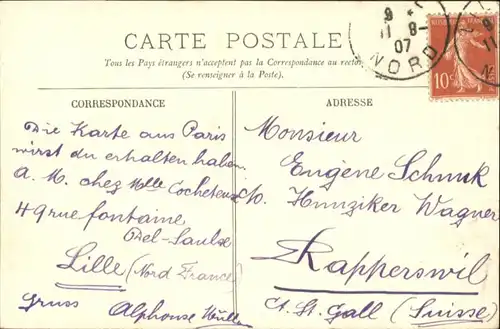 CARTE POSTALE
Tous les Pays étrangers n'acceptent pas la Correspondance au recto
(Se renseigner à la Poste).
CORRESPONDANCE
Die Karte aus Paris
wirst du erhalten haben.
a. M. chez Mlle
49 rue fontaine
Del-Saulx
Lille (Nord France)
Gruss Alphonse
ADRESSE
Monsieur
Eugène Schmuk
c/o. Hunziker Wagner
Rapperswil
Ct. St. Gall (Suisse)
9
11 8-
07
NORD
10c